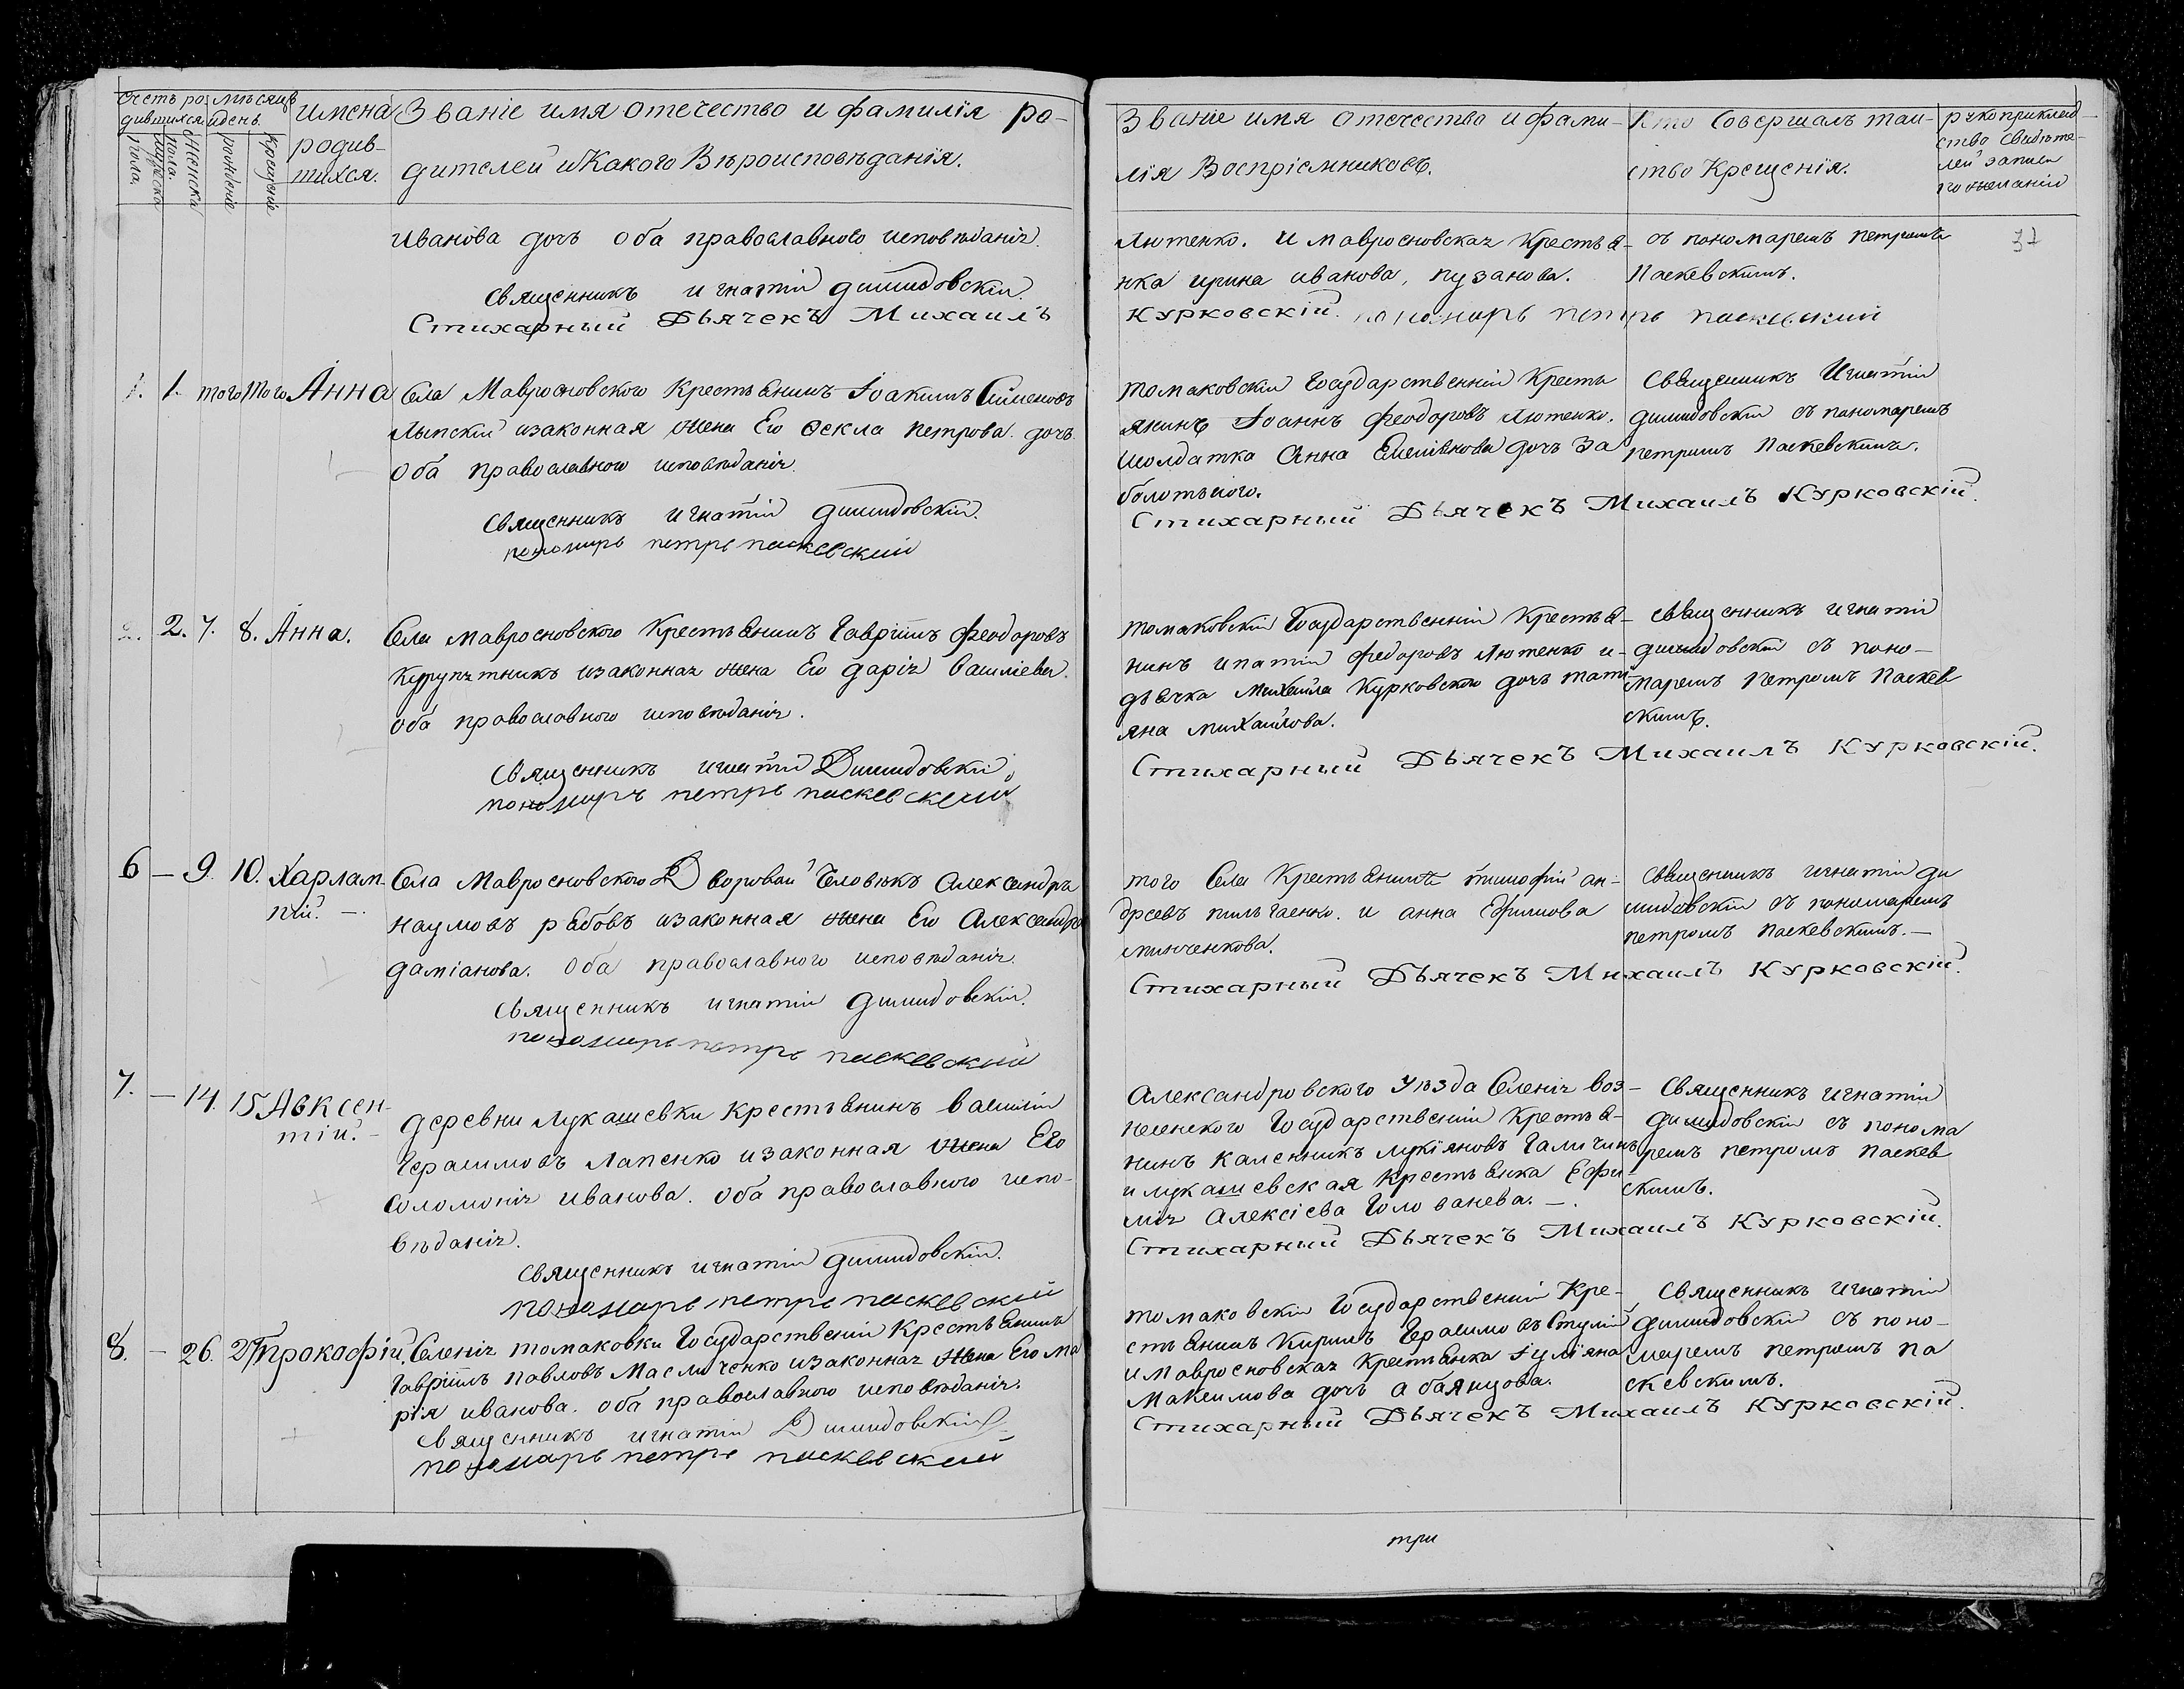 Счетъ ро- мѣсяцъ имена Званіе имя отечество и фамилія ро-
дившихся иденъ родив- дителей и Какого Вѣроисповѣданія.
шихся.
мужеска пола. Женска рожденіе Крещеніе
Званіе имя отечества и фами- Кто Совершалъ таи- рукоприклад
лія Воспріемниковъ. ство Крещенія. ство Свидѣте-
лей записи
по желанію
37
Иванова дочь Оба православного исповѣданія.
Священникъ игнатій димидовскій.
Стихарный Дьячекъ Михаилъ
Лютенко. и мавросновская Крестья-
нка ирина иванова, пузанова.
Курковскій. пономарь петръ паскевский
съ пономаремъ петромъ
Паскевскимъ.
1. 1. того того Анна
Села Мавросновского Крестьянинъ Іоакимъ Симеоновъ
Лыпскій изаконная жена Его Фекла петрова дочь.
Оба православного исповѣданія.
Священникъ игнатій димидовскій.
пономарь петръ паскевский
томаковскій Государственній Кресть
янинъ Іоаннъ Феодоровъ Лютенко.
исолдатка Анна Емеліянова дочь За
болотьного.
Стихарный Дьячекъ Михаилъ Курковскій.
Священникъ Игнатій
димидовскій съ пономаремъ
петромъ Паскевскимъ.
2. 2. 7. 8. Анна.
Села мавросновского Крестьянинъ Гавріилъ Феодоровъ
изаконная жена Его дарія Василіева.
оба православного исповѣданія.
Священникъ игнатій Димидовскій
пономарь петръ паскевский
томаковскій Государственній Крестья-
нинъ ипатій федоровъ Лютенко и-
дьячка михаила Курковского дочь тати-
яна михайлова.
Стихарный Дьячекъ Михаилъ Курковскій.
Священникъ игнатій
димидовскій съ поно-
маремъ Петромъ Паскев
скимъ.
6 — 9. 10. Харлам-
пій. —
Села Мавросновского Дворовой Человѣкъ Александръ
наумовъ рабовъ изаконная жена Его Александра
даміанова. Оба православного исповѣданія.
Священникъ игнатій димидовскій.
пономарь петръ паскевский
того Села Крестьянинъ тимофій ан-
дреевъ пильгаенко. и анна Ефимова
минченкова.
Стихарный Дьячекъ Михаилъ Курковскій.
Священникъ игнатій ди
мидовскій съ пономаремъ
петромъ паскевскимъ. —
7. — 14. 15 Авксен-
тій. —
деревни Лукашевки Крестьянинъ василій
Герасимовъ Лапенко изаконная жена Его
Соломонія иванова. Оба православного испо-
вѣданія.
Священникъ игнатій димидовскій.
пономарь петръ паскевский
Александровского Уѣзда Селенія Воз-
несенского Государственій Крестья-
нинъ Каленникъ Лукіяновъ Галичинъ
и лукашевская Крестьянка Ефи-
мія Алексіева Голованева. —.
Стихарный Дьячекъ Михаилъ Курковскій.
Священникъ игнатій
димидовскій съ понома
ремъ петромъ паскев
скимъ.
8. — 26. 27 Прокофій.
Селенія томаковки Государственій Крестьянинъ
Гавріилъ павловъ Масличенко изаконная жена Его Ма
рія иванова. оба православного исповѣданія.
Священникъ игнатій Димидовскій
пономарь петръ паскевский
томаковскій Государственій Кре-
стьянинъ Кирилъ Герасимовъ Стулій
и мавросновская Крестьянка Іуліяна
Максимова дочь абаянцова.
Стихарный Дьячекъ Михаилъ Курковскій.
Священникъ игнатій
димидовскій съ поно-
маремъ петромъ па
скевскимъ.
три